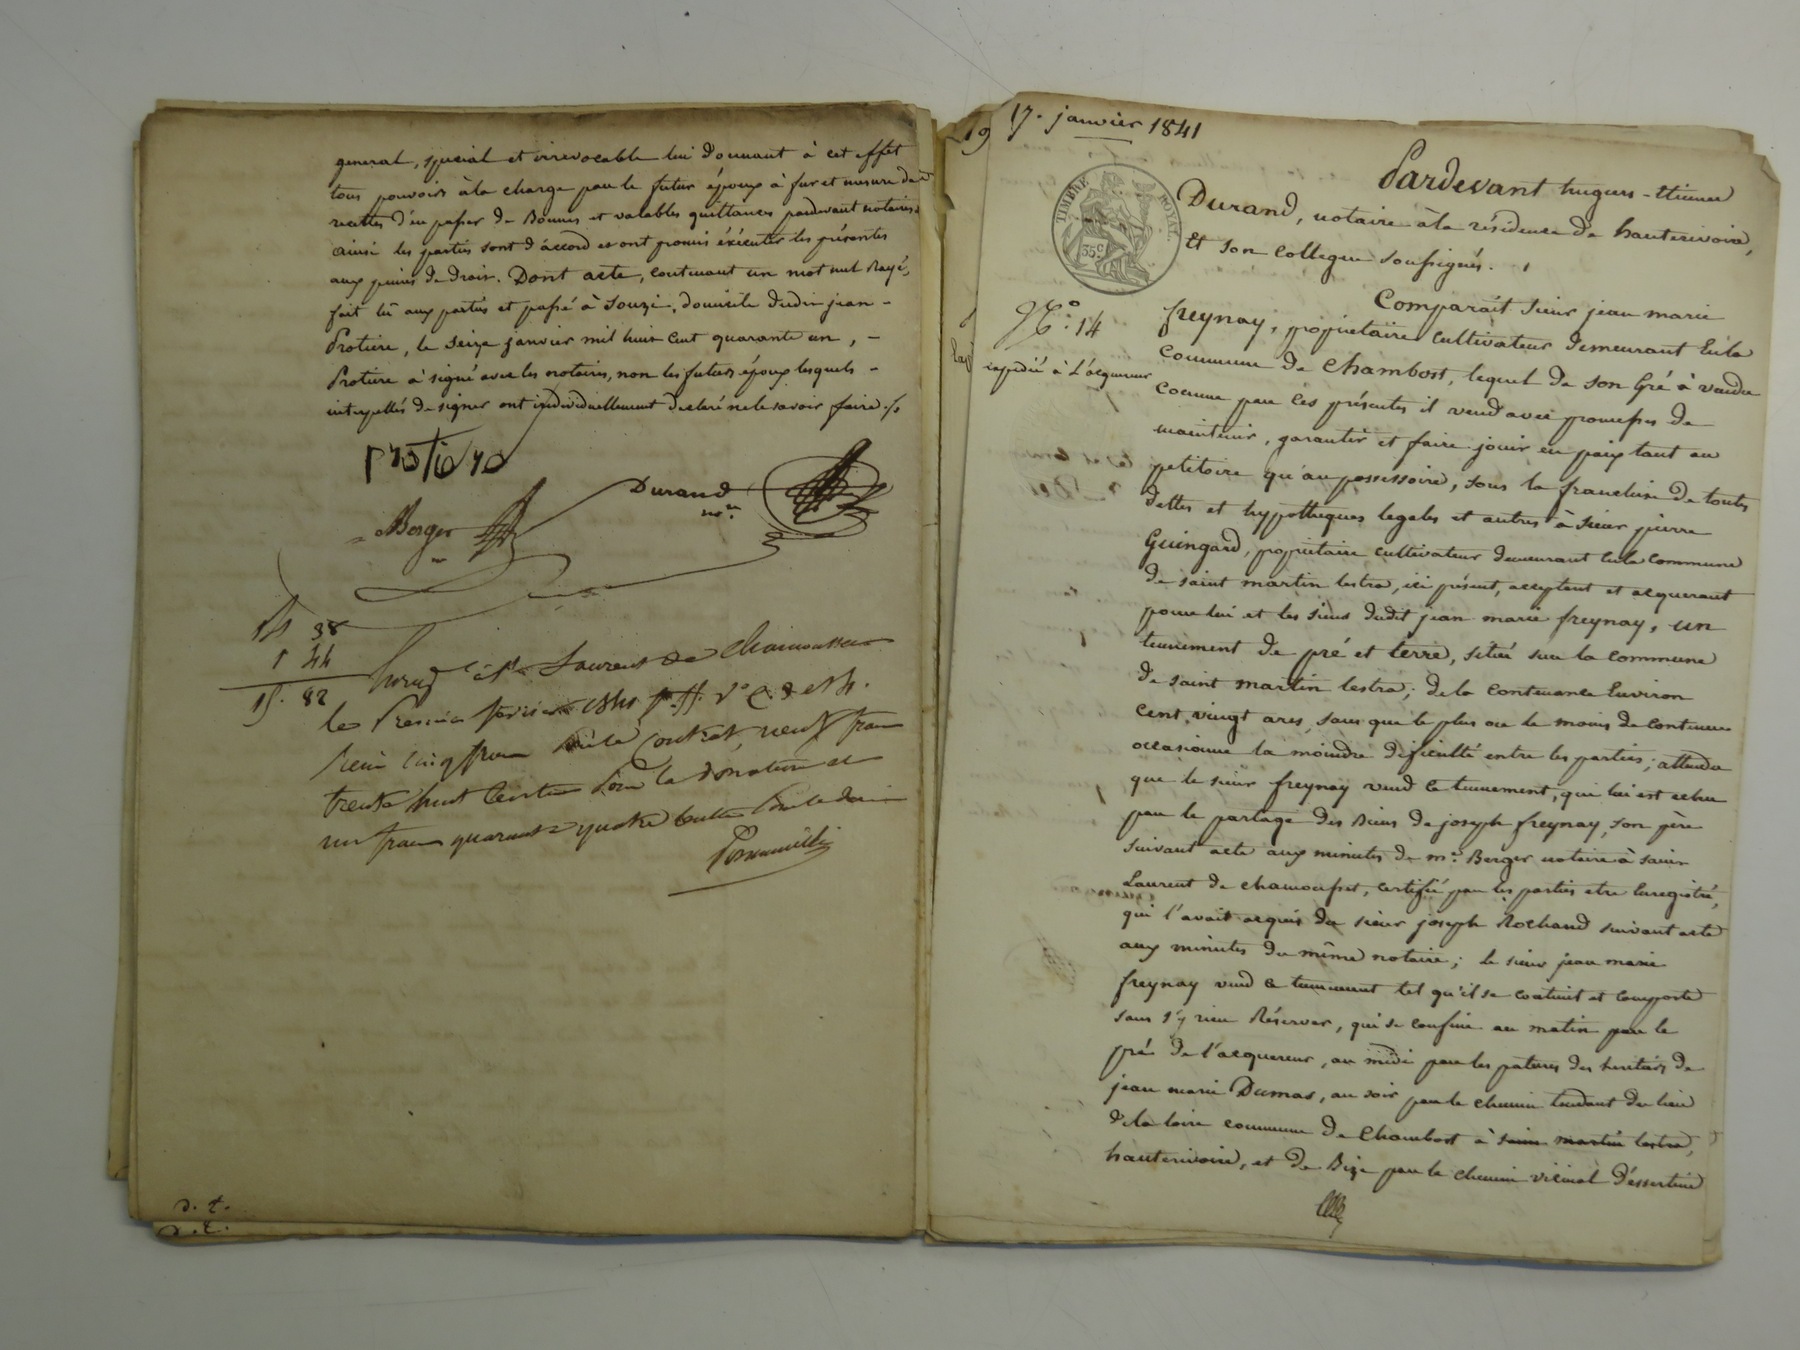 general, special et irrevocable lui donnant à cet effet
tous pouvoirs à la charge par le futur époux à fur et mesure des
recettes d'en passer de Bonnes et valables quittances pardevant notaires.
ainsi les parties sont d'accord et ont promis éxécuter les présentes
aux peines de droit. Dont acte, contenant un mot nul Rayé,
fait lû aux parties et passé à Souzi, domicile dudit jean -
Protiere, le seize janvier mil huit cent quarante un, -
Protiere à signé avec les notaires, non les futurs époux lesquels -
interpellés de signer ont individuellement declaré ne le savoir faire ./.
Durand
Berger
no.re
38
1 44
82
St Laurent de Chamousset
le Premier
cinq francs contrat, neuf francs
trente huit Centimes pour la donation et
un franc quarante quatre
d. t.
d. t.
19
17. janvier 1841
Pardevant hugues-Etienne
TIMBRE ROYAL.
35 c
Durand, notaire à la résidence de hauterivoire,
Et son collegue soussignés.
N.o 14
expédié à l'acquereur
Comparait sieur jean marie
freynay, propriétaire cultivateur demeurant En la
commune de Chambost, lequel de son Gré à vendu
comme par ces présentes il vend avec promesses de
maintenir, garantir et faire jouir en paix tant au
petitoire qu'au possessoire, sous la franchise de toutes
dettes et hypotheques legales et autres à sieur pierre
Guingard, propriétaire cultivateur demeurant en la Commune
de saint martin lestra, ici présent, acceptant et acquerant
pour lui et les siens dudit jean marie freynay, un
tennement de pré et terre, situé sur la commune
de saint martin lestra; de la contenance Environ
cent vingt ares, sans que le plus ou le moins de contenue
occasionne la moindre dificulté entre les parties; attendu
que le sieur freynay vend ce tennement, qui lui est echu
par le partage des Biens de joseph freynay, son père
suivant acte aux minutes de m.e Berger notaire à saint
Laurent de chamousset, certifié par les parties etre Enregistré,
qui l'avait acquis du sieur joseph Rochand suivant acte
aux minutes du même notaire; le sieur jean marie
freynay vend ce tennement tel qu'il se contient et comporte
sans s'y rien Réserver, qui se confine au matin par le
pré de l'acquereur, au midi par les patures des heritiers de
jean marie Dumas, au soir par le chemin tendant du lieu
de la loire commune de Chambost à saint martin lestra,
hauterivoire, et de Bize par le chemin vicinal d'éssertine